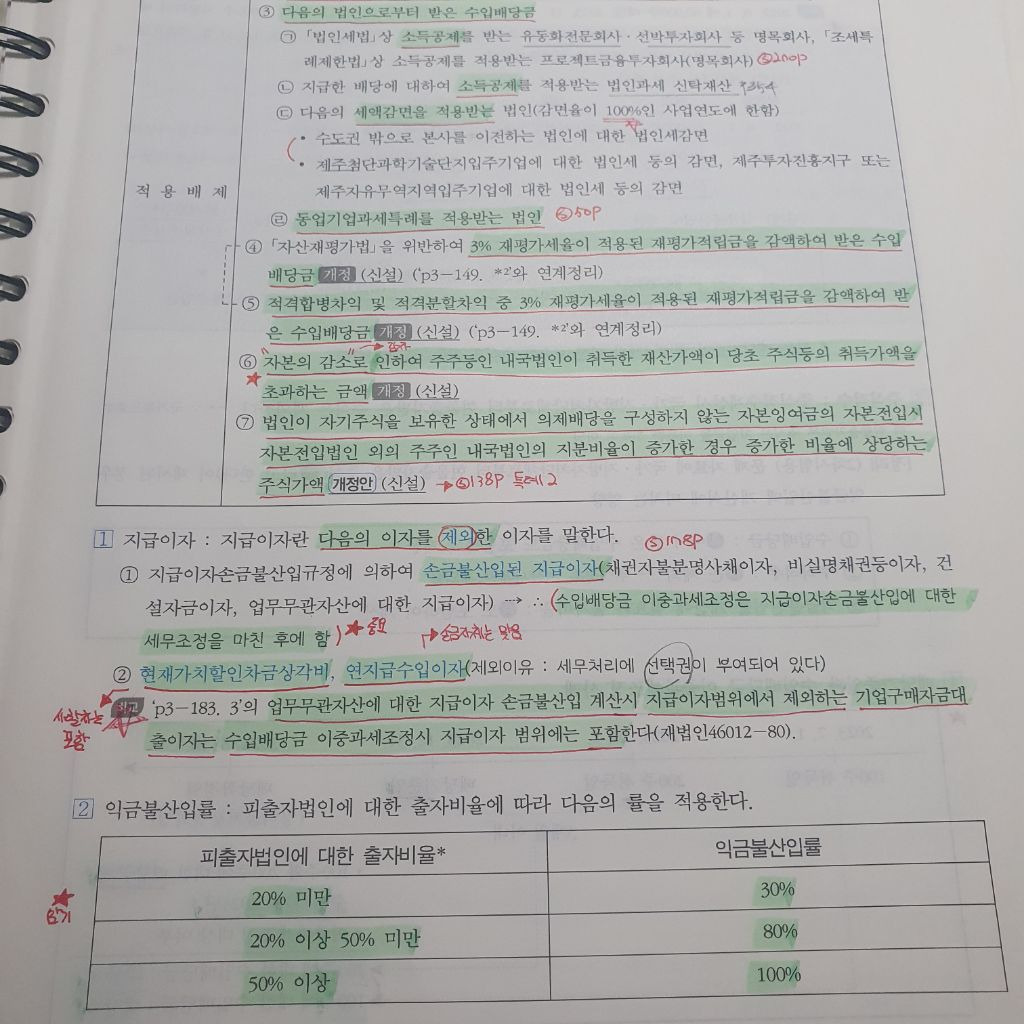 ③ 다음의 법인으로부터 받은 수입배당금
㉠ 「법인세법」상 소득공제를 받는 유동화전문회사·선박투자회사 등 명목회사, 「조세특
례제한법」상 소득공제를 적용받는 프로젝트금융투자회사(명목회사) ⑤210p
㉡ 지급한 배당에 대하여 소득공제를 적용받는 법인과세 신탁재산
㉢ 다음의 세액감면을 적용받는 법인(감면율이 100%인 사업연도에 한함)
• 수도권 밖으로 본사를 이전하는 법인에 대한 법인세감면
• 제주첨단과학기술단지입주기업에 대한 법인세 등의 감면, 제주투자진흥지구 또는
적용배제
제주자유무역지역입주기업에 대한 법인세 등의 감면
㉣ 동업기업과세특례를 적용받는 법인 ⑤50p
④ 「자산재평가법」을 위반하여 3% 재평가세율이 적용된 재평가적립금을 감액하여 받은 수입
배당금 개정 (신설) ('p3-149. *2'와 연계정리)
⑤ 적격합병차익 및 적격분할차익 중 3% 재평가세율이 적용된 재평가적립금을 감액하여 받
은 수입배당금 개정 (신설) ('p3-149. *2'와 연계정리)
→ 감자
⑥ "자본의 감소"로 인하여 주주등인 내국법인이 취득한 재산가액이 당초 주식등의 취득가액을
★ 초과하는 금액 개정 (신설)
⑦ 법인이 자기주식을 보유한 상태에서 의제배당을 구성하지 않는 자본잉여금의 자본전입시
자본전입법인 외의 주주인 내국법인의 지분비율이 증가한 경우 증가한 비율에 상당하는
주식가액 개정안 (신설) → ⑤138p 특례2
1 지급이자 : 지급이자란 다음의 이자를 제외한 이자를 말한다. ⑤178p
① 지급이자손금불산입규정에 의하여 손금불산입된 지급이자(채권자불분명사채이자, 비실명채권등이자, 건
설자금이자, 업무무관자산에 대한 지급이자) → ∴ (수입배당금 이중과세조정은 지급이자손금불산입에 대한
세무조정을 마친 후에 함) ★중요 → 손금자체는 맞음
② 현재가치할인차금상각비, 연지급수입이자(제외이유 : 세무처리에 선택권이 부여되어 있다)
참고 'p3-183. 3'의 업무무관자산에 대한 지급이자 손금불산입 계산시 지급이자범위에서 제외하는 기업구매자금대
포함 출이자는 수입배당금 이중과세조정시 지급이자 범위에는 포함한다(재법인46012-80).
2 익금불산입률 : 피출자법인에 대한 출자비율에 따라 다음의 률을 적용한다.
피출자법인에 대한 출자비율* 익금불산입률
★ 암기 20% 미만 30%
20% 이상 50% 미만 80%
50% 이상 100%